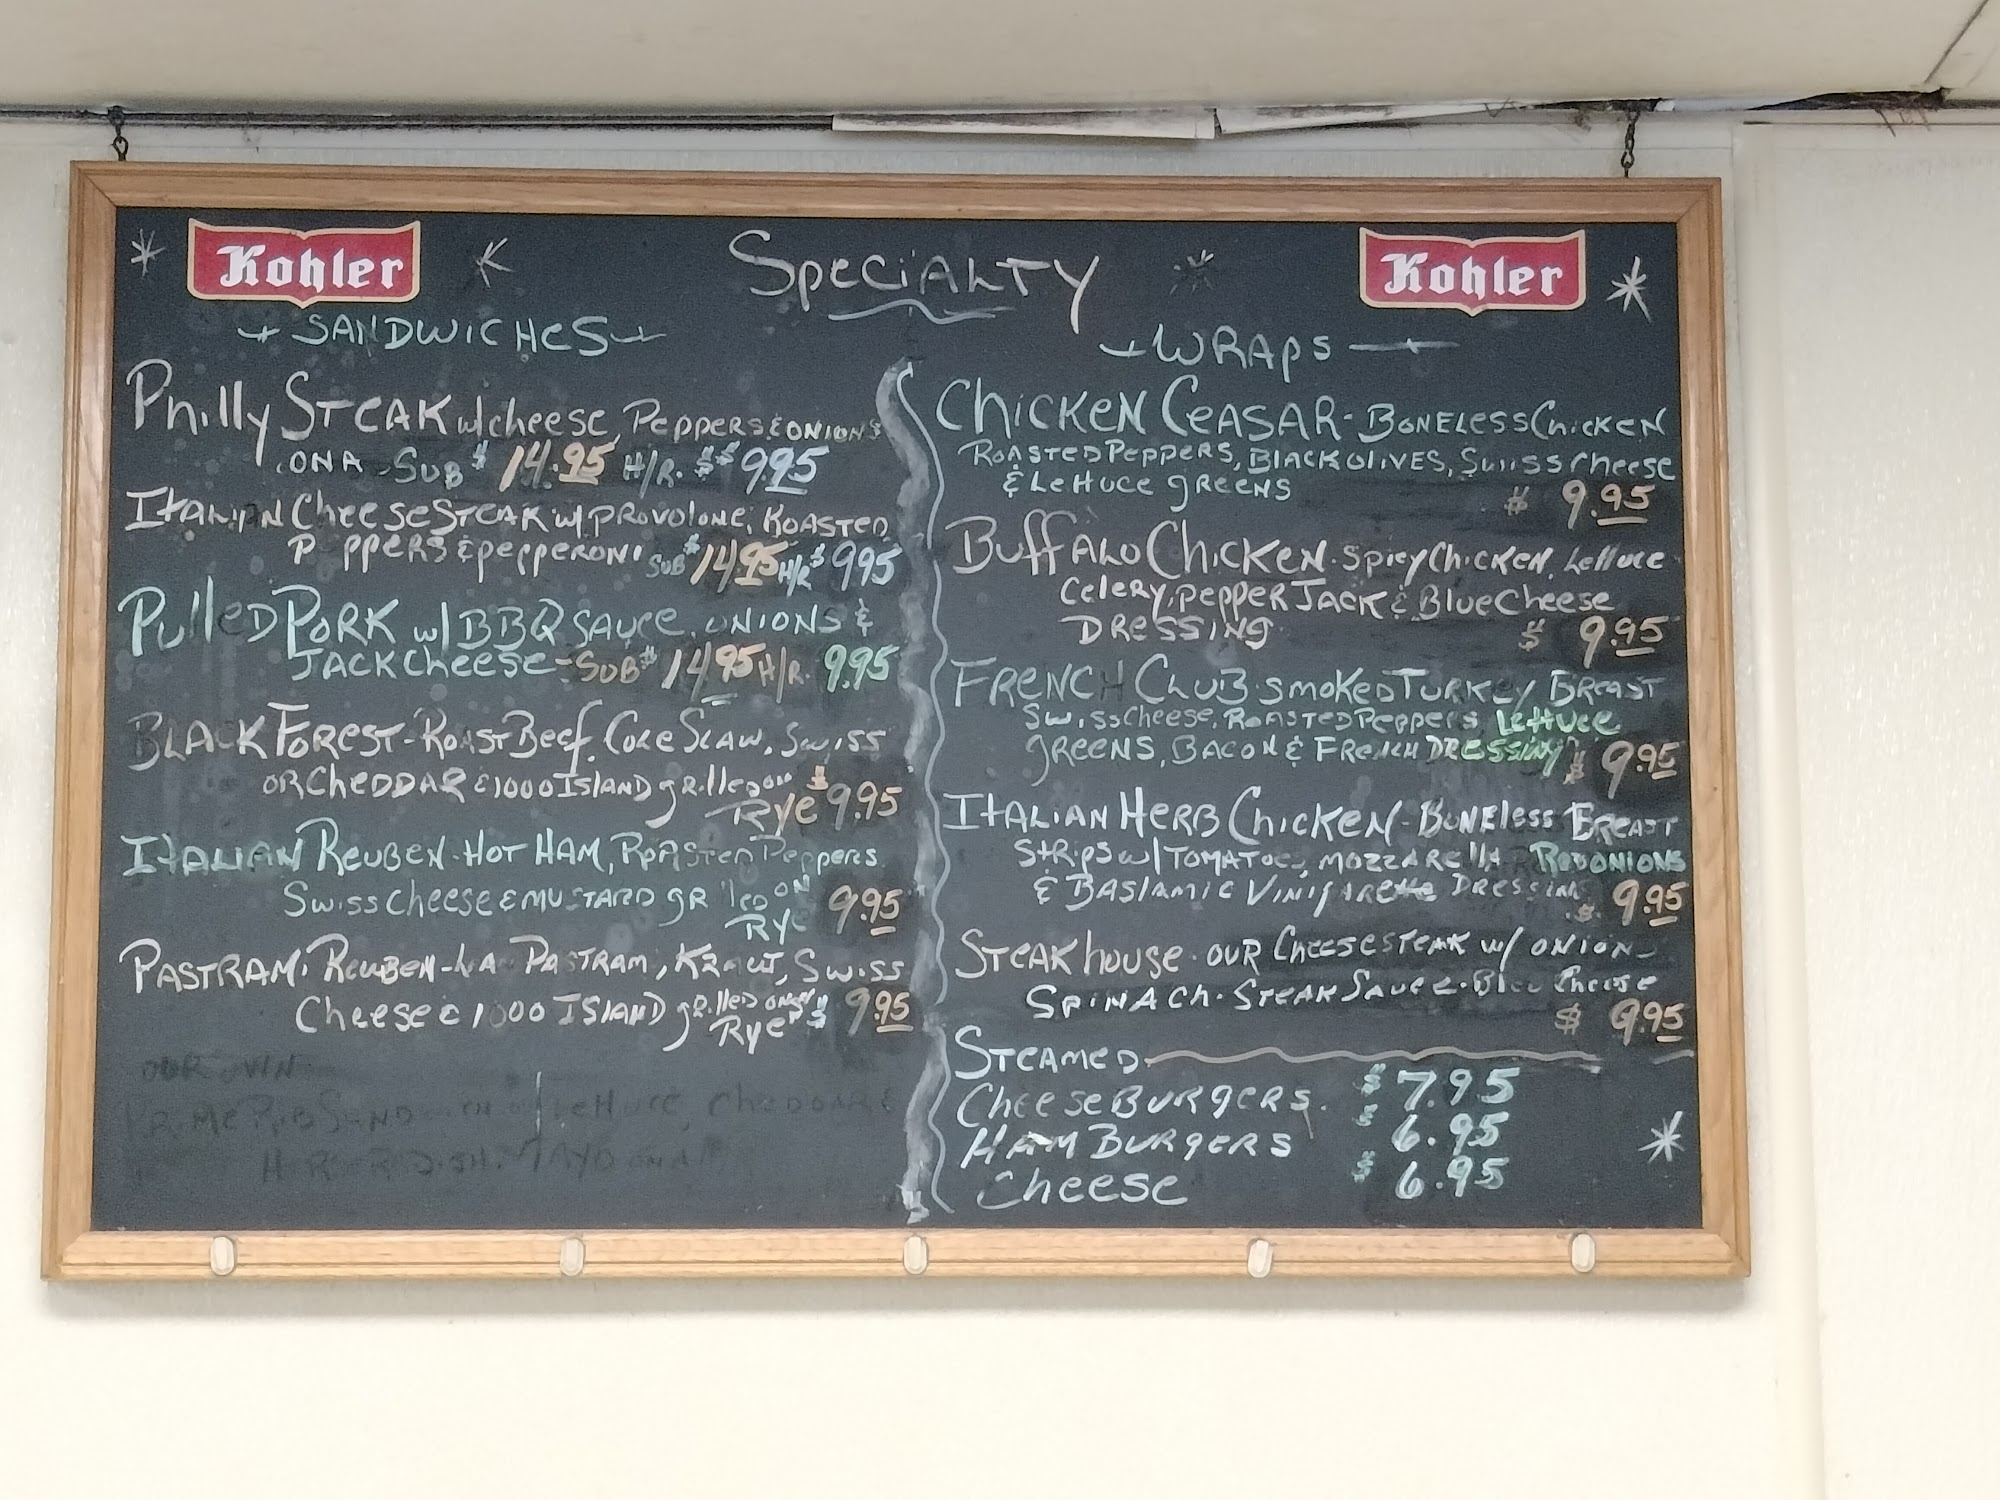 Kohler
Specialty
Kohler
SANDWICHES
Philly STEAK w/cheese, Peppers & ONIONS
ON A SUB $14.95 H/R. $9.95
ITALIAN CheeseSTEAK w/PROVOLONE, ROASTED
PEPPERS & pepperoni SUB $14.95 H/R $9.95
Pulled PORK w/BBQ SAUCE, ONIONS &
JACK Cheese - SUB $14.95 H/R. 9.95
BLACK FOREST - ROAST Beef, Cole SLAW, Swiss
OR CHEDDAR & 1000 ISLAND grilled on
Rye $9.95
ITALIAN REUBEN - HOT HAM, ROASTED Peppers
Swiss Cheese & MUSTARD GRilled ON
Rye 9.95
PASTRAMI REUBEN - PASTRAMI, KRAUT, Swiss
Cheese & 1000 ISLAND grilled on
Rye $9.95
OUR OWN
PRIME RIB SANDWICH w/LETTUCE, CHEDDAR &
HORSERADISH MAYO ON A
WRAPS
CHICKEN CEASAR - BONELESS CHICKEN
ROASTED PEPPERS, BLACK OLIVES, SWISS Cheese
& LETTUCE GREENS $9.95
Buffalo Chicken - SPICY CHICKEN, Lettuce
Celery, PEPPER JACK & BLUE Cheese
DRESSING $9.95
FRENCH CLUB - SMOKED TURKEY BREAST
Swiss Cheese, ROASTED Peppers, Lettuce
GREENS, BACON & FRENCH DRESSING $9.95
ITALIAN HERB CHICKEN - BONELESS BREAST
STRIPS w/TOMATOES, MOZZARELLA RED ONIONS
& BASLAMIC VINIGARETTE DRESSING $9.95
STEAKHOUSE - OUR CHEESESTEAK w/ ONION -
SPINACH - STEAK SAUCE - Bleu Cheese
$9.95
STEAMED
CHEESEBURGERS. $7.95
HAMBURGERS $6.95
Cheese $6.95